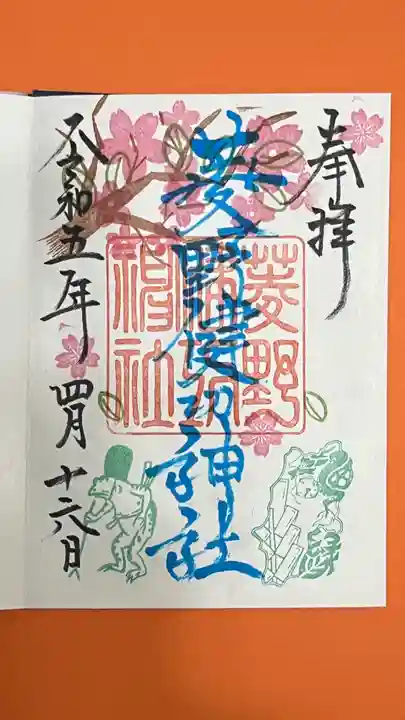 奉拝
菱野健功神社
菱野健功神社
令和五年四月十六日